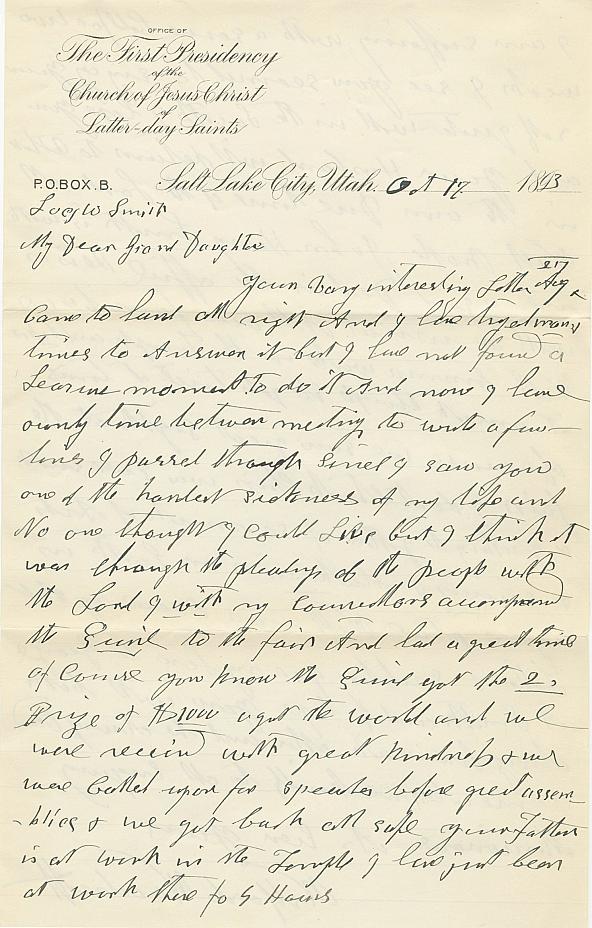 OFFICE OF
The First Presidency
of the
Church of Jesus Christ
of
Latter-day Saints
P.O. BOX. B. Salt Lake City, Utah. Oct 17 1893
Smith
My Dear Grand Daughter
Your very interesting Letter Aug 27
Came to hand all right And I have tryed many
times to Answer it but I have not found a
Leasure moment to do it And now I have
ownly time between meeting to write a few
lines I passed through Since I saw you
one of the hardest sickness of my life and
No one thought I Could Live but I think it
was through the pleadings of the people with
the Lord I with my Councillors accompand
the Quire to the fair And had a great time
of Course you know the Quire got the 2d
Prize of $1000 agst the world and we
were receivd with great kindness & we
were Called upon for speaches before great assem
-blies & we got back all safe your Father
is at work in the Temple I have just been
at work there for 5 Hours